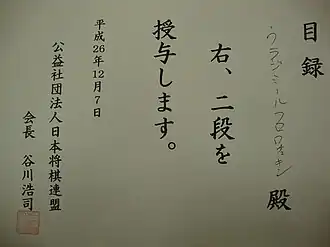 目録
ウラジーミール 殿
右、二段を
授与します。
平成26年12月7日
公益社団法人日本将棋連盟
会長 谷川浩司